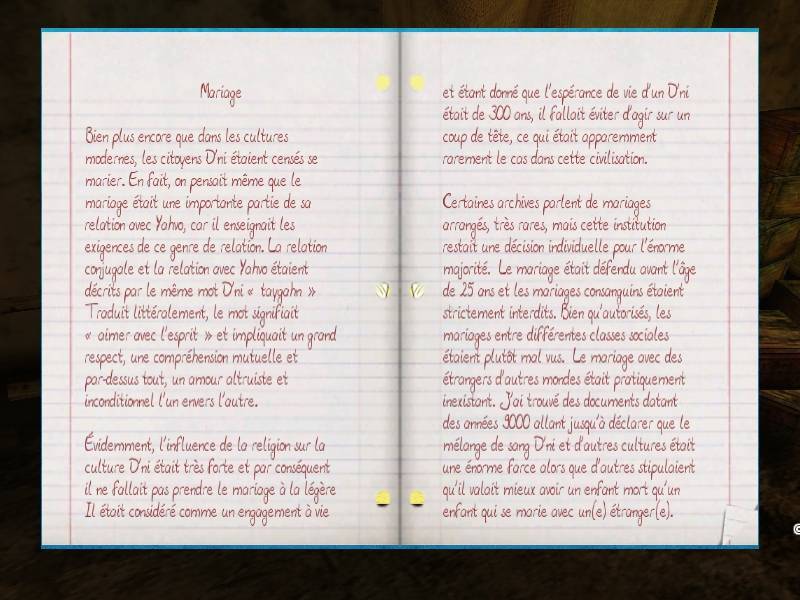 Mariage
Bien plus encore que dans les cultures
modernes, les citoyens D'ni étaient censés se
marier. En fait, on pensait même que le
mariage était une importante partie de sa
relation avec Yahvo, car il enseignait les
exigences de ce genre de relation. La relation
conjugale et la relation avec Yahvo étaient
décrits par le même mot D'ni « taygahn »
Traduit littéralement, le mot signifiait
« aimer avec l'esprit » et impliquait un grand
respect, une compréhension mutuelle et
par-dessus tout, un amour altruiste et
inconditionnel l'un envers l'autre.
Évidemment, l'influence de la religion sur la
culture D'ni était très forte et par conséquent
il ne fallait pas prendre le mariage à la légère
Il était considéré comme un engagement à vie
et étant donné que l'espérance de vie d'un D'ni
était de 300 ans, il fallait éviter d'agir sur un
coup de tête, ce qui était apparemment
rarement le cas dans cette civilisation.
Certaines archives parlent de mariages
arrangés, très rares, mais cette institution
restait une décision individuelle pour l'énorme
majorité. Le mariage était défendu avant l'âge
de 25 ans et les mariages consanguins étaient
strictement interdits. Bien qu'autorisés, les
mariages entre différentes classes sociales
étaient plutôt mal vus. Le mariage avec des
étrangers d'autres mondes était pratiquement
inexistant. J'ai trouvé des documents datant
des années 9000 allant jusqu'à déclarer que le
mélange de sang D'ni et d'autres cultures était
une énorme farce alors que d'autres stipulaient
qu'il valait mieux avoir un enfant mort qu'un
enfant qui se marie avec un(e) étranger(e).